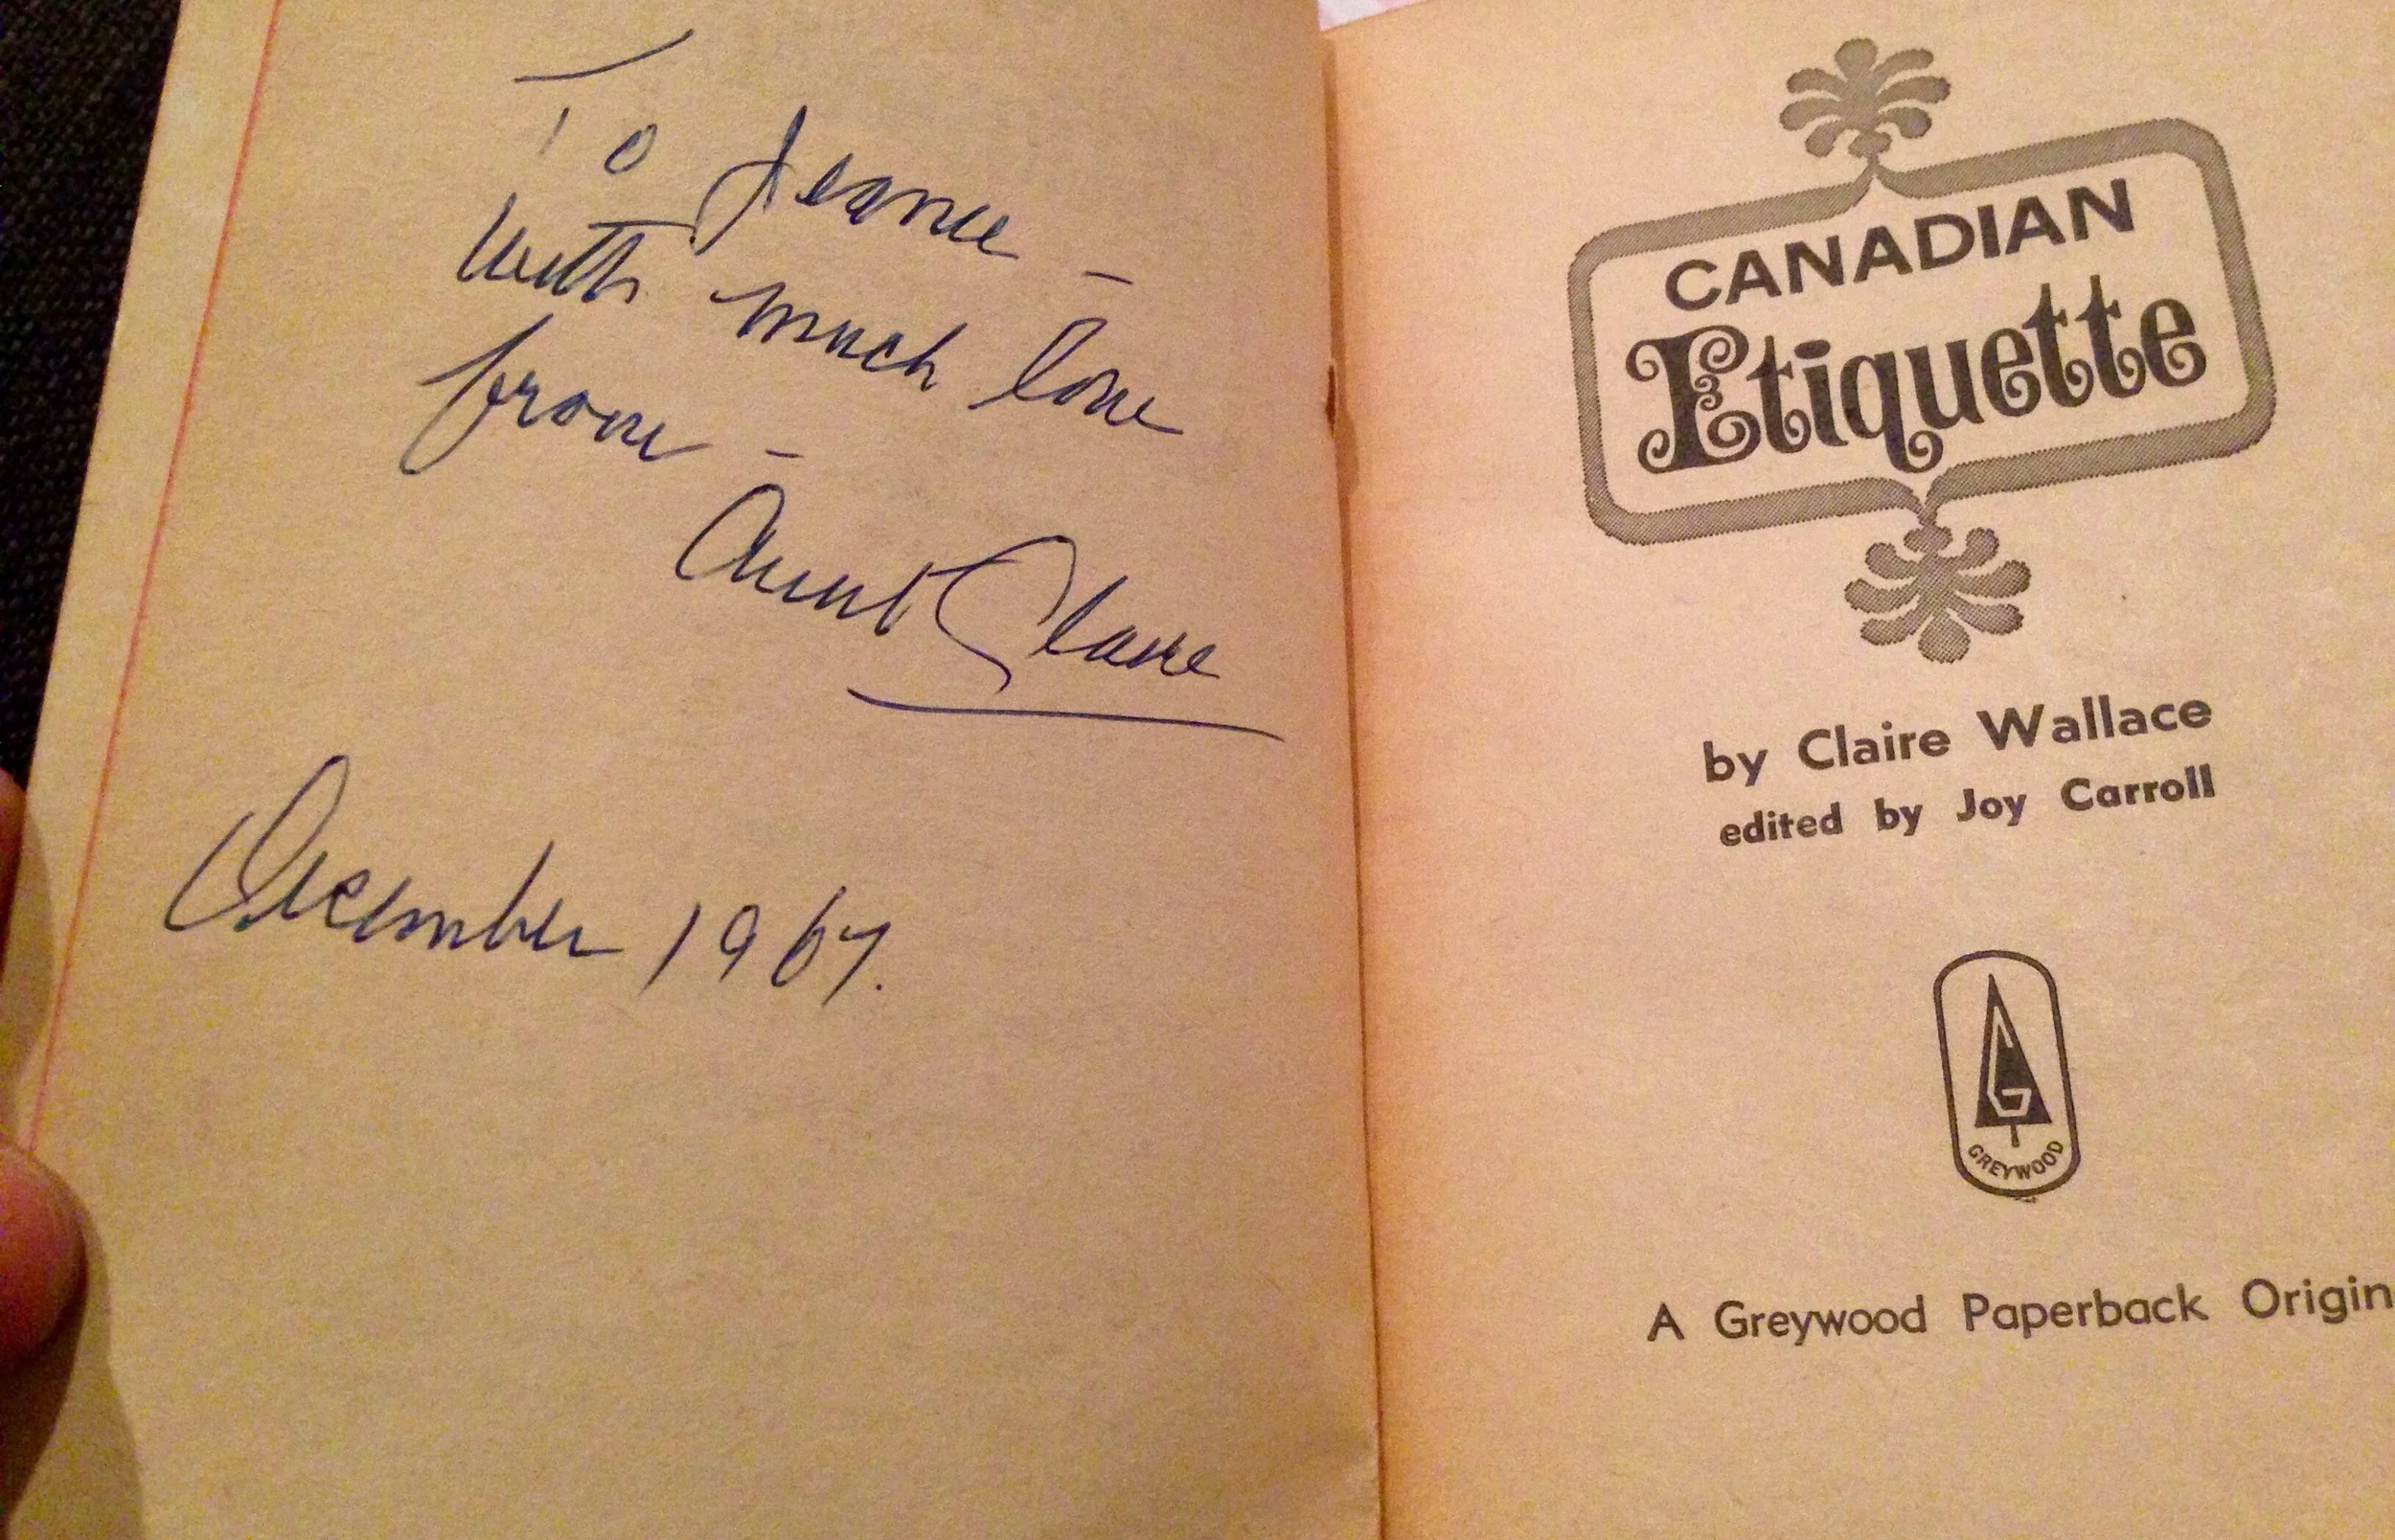 To Jeanne -
with much love
from -
Aunt Claire
December 1967.
CANADIAN
Etiquette
by Claire Wallace
edited by Joy Carroll
G
GREYWOOD
A Greywood Paperback Origin